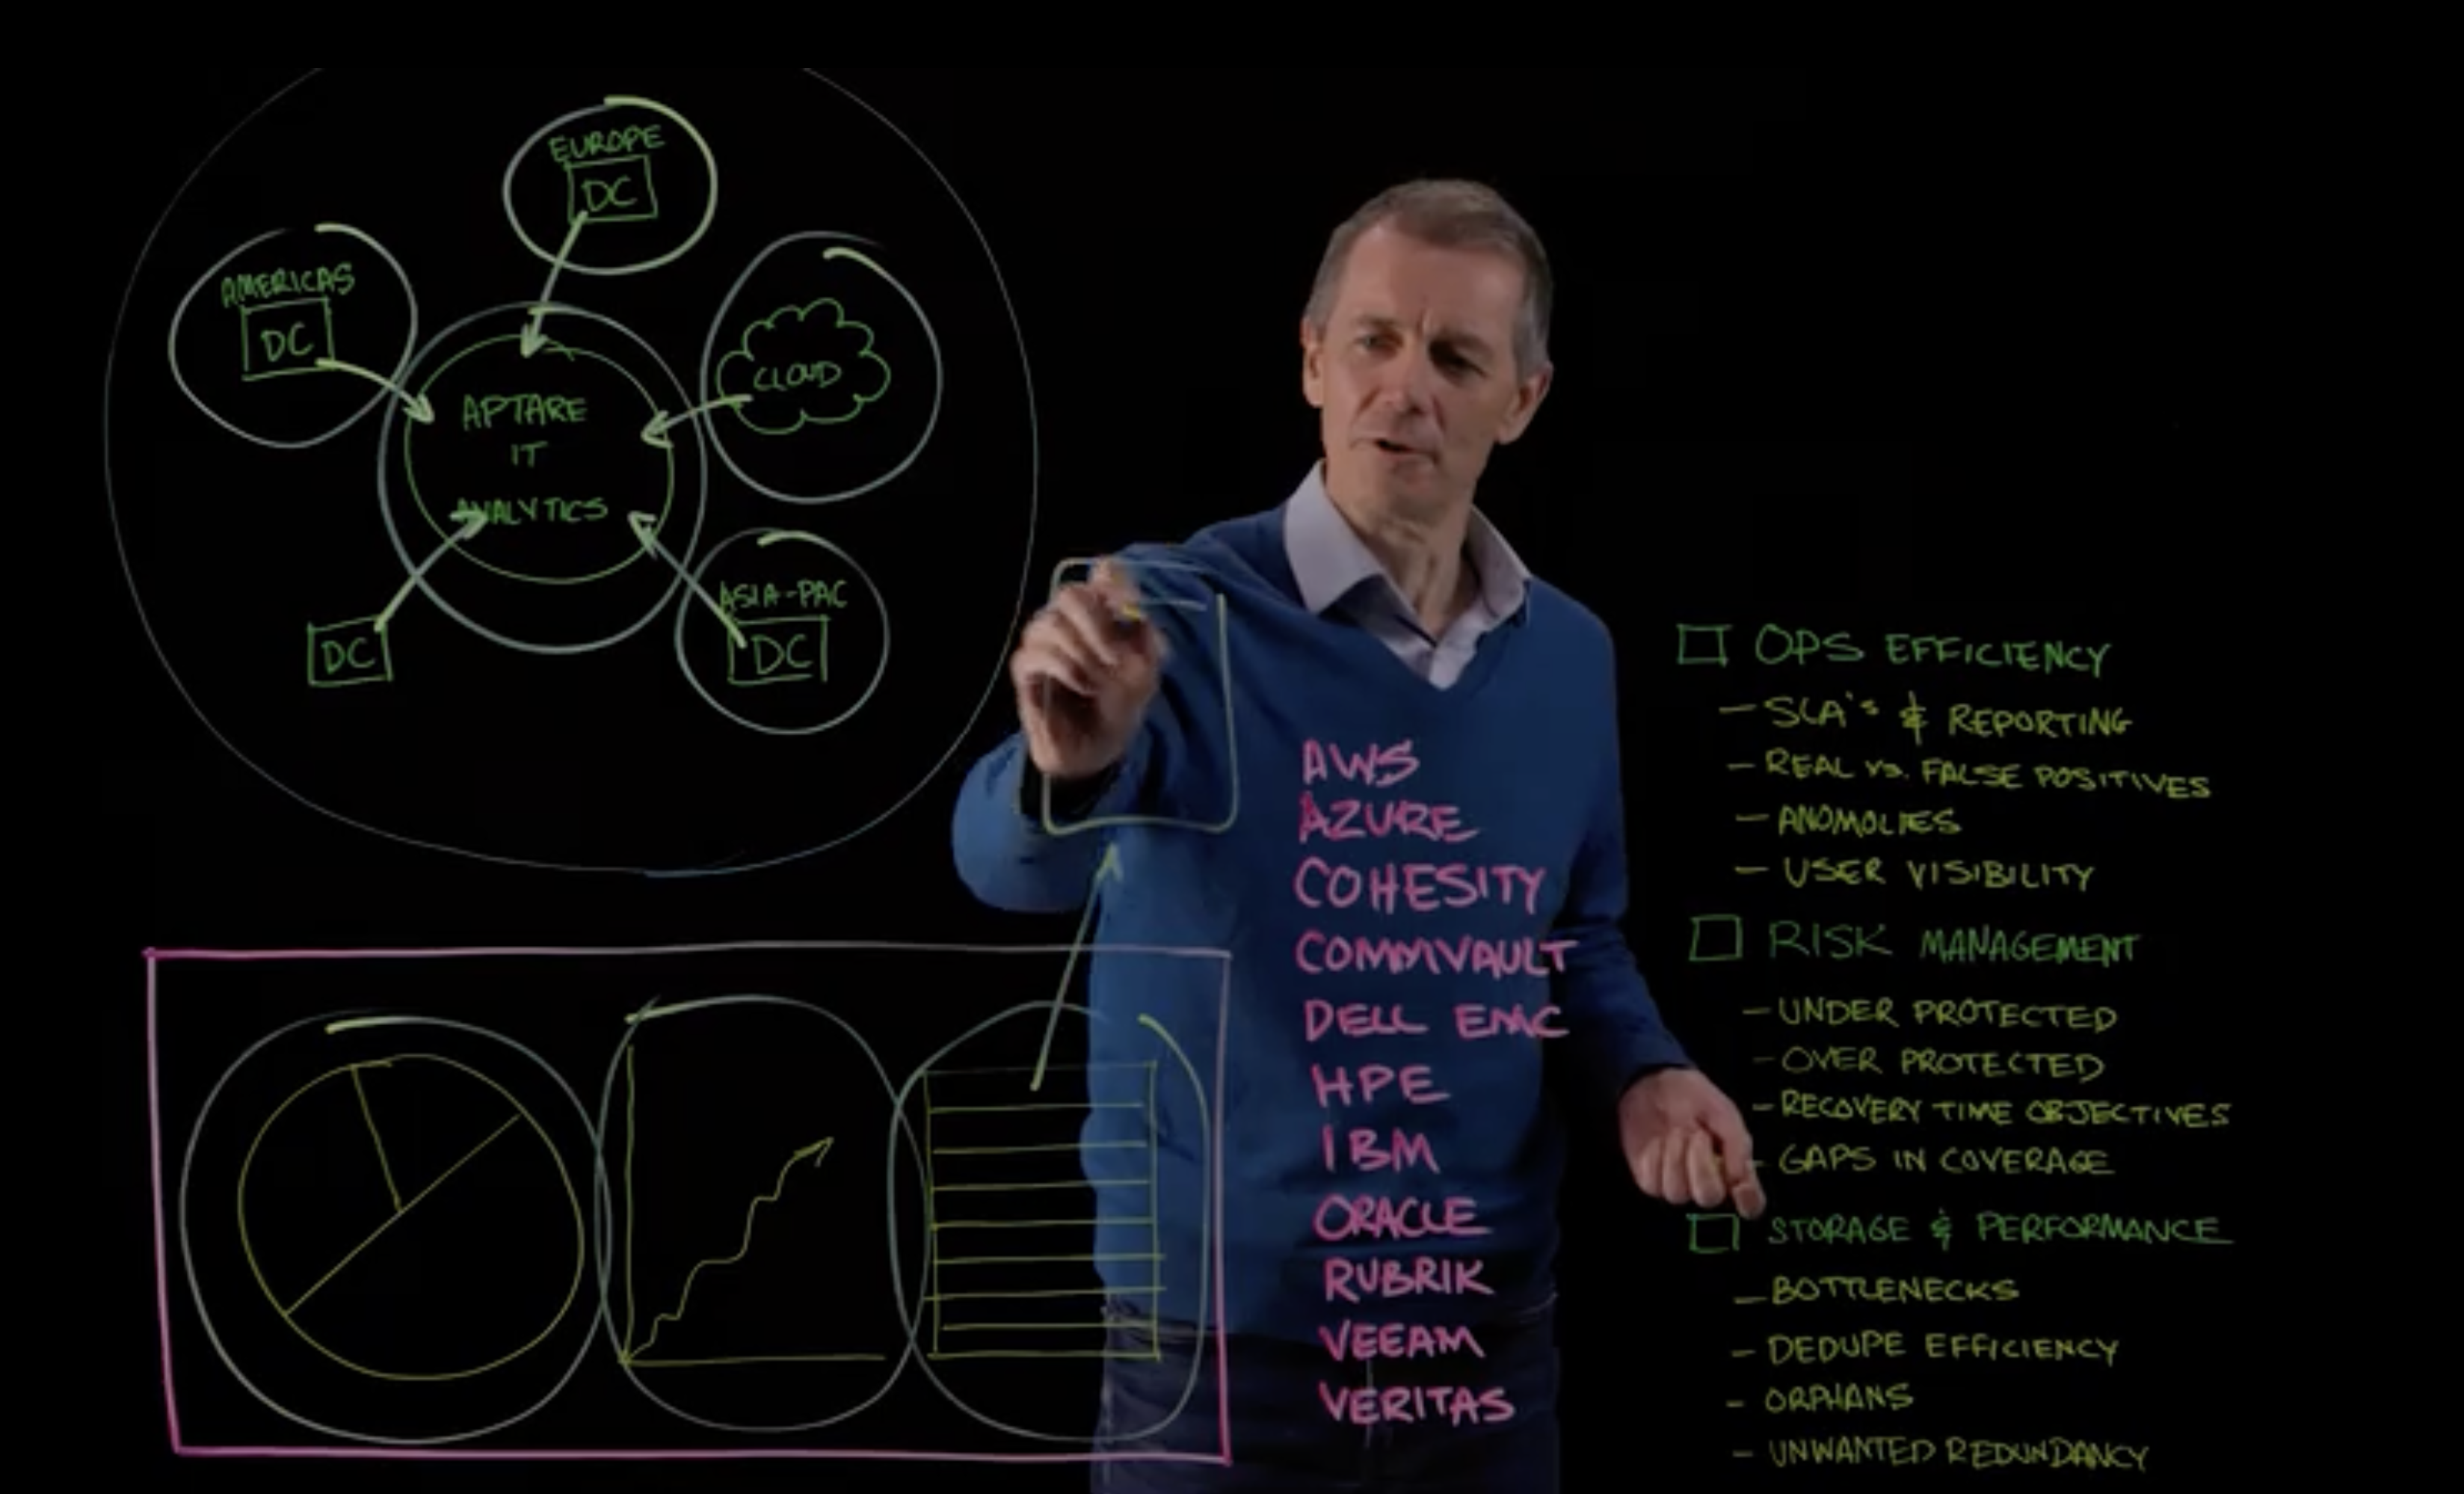 EUROPE
DC
AMERICAS
DC
CLOUD
APTARE
IT
ANALYTICS
ASIA-PAC
DC
DC
AWS
AZURE
COHESITY
COMMVAULT
DELL EMC
HPE
IBM
ORACLE
RUBRIK
VEEAM
VERITAS
OPS EFFICIENCY
- SLA's & REPORTING
- REAL vs. FALSE POSITIVES
- ANOMOLIES
- USER VISIBILITY
RISK MANAGEMENT
- UNDER PROTECTED
- OVER PROTECTED
- RECOVERY TIME OBJECTIVES
- GAPS IN COVERAGE
STORAGE & PERFORMANCE
- BOTTLENECKS
- DEDUPE EFFICIENCY
- ORPHANS
- UNWANTED REDUNDANCY